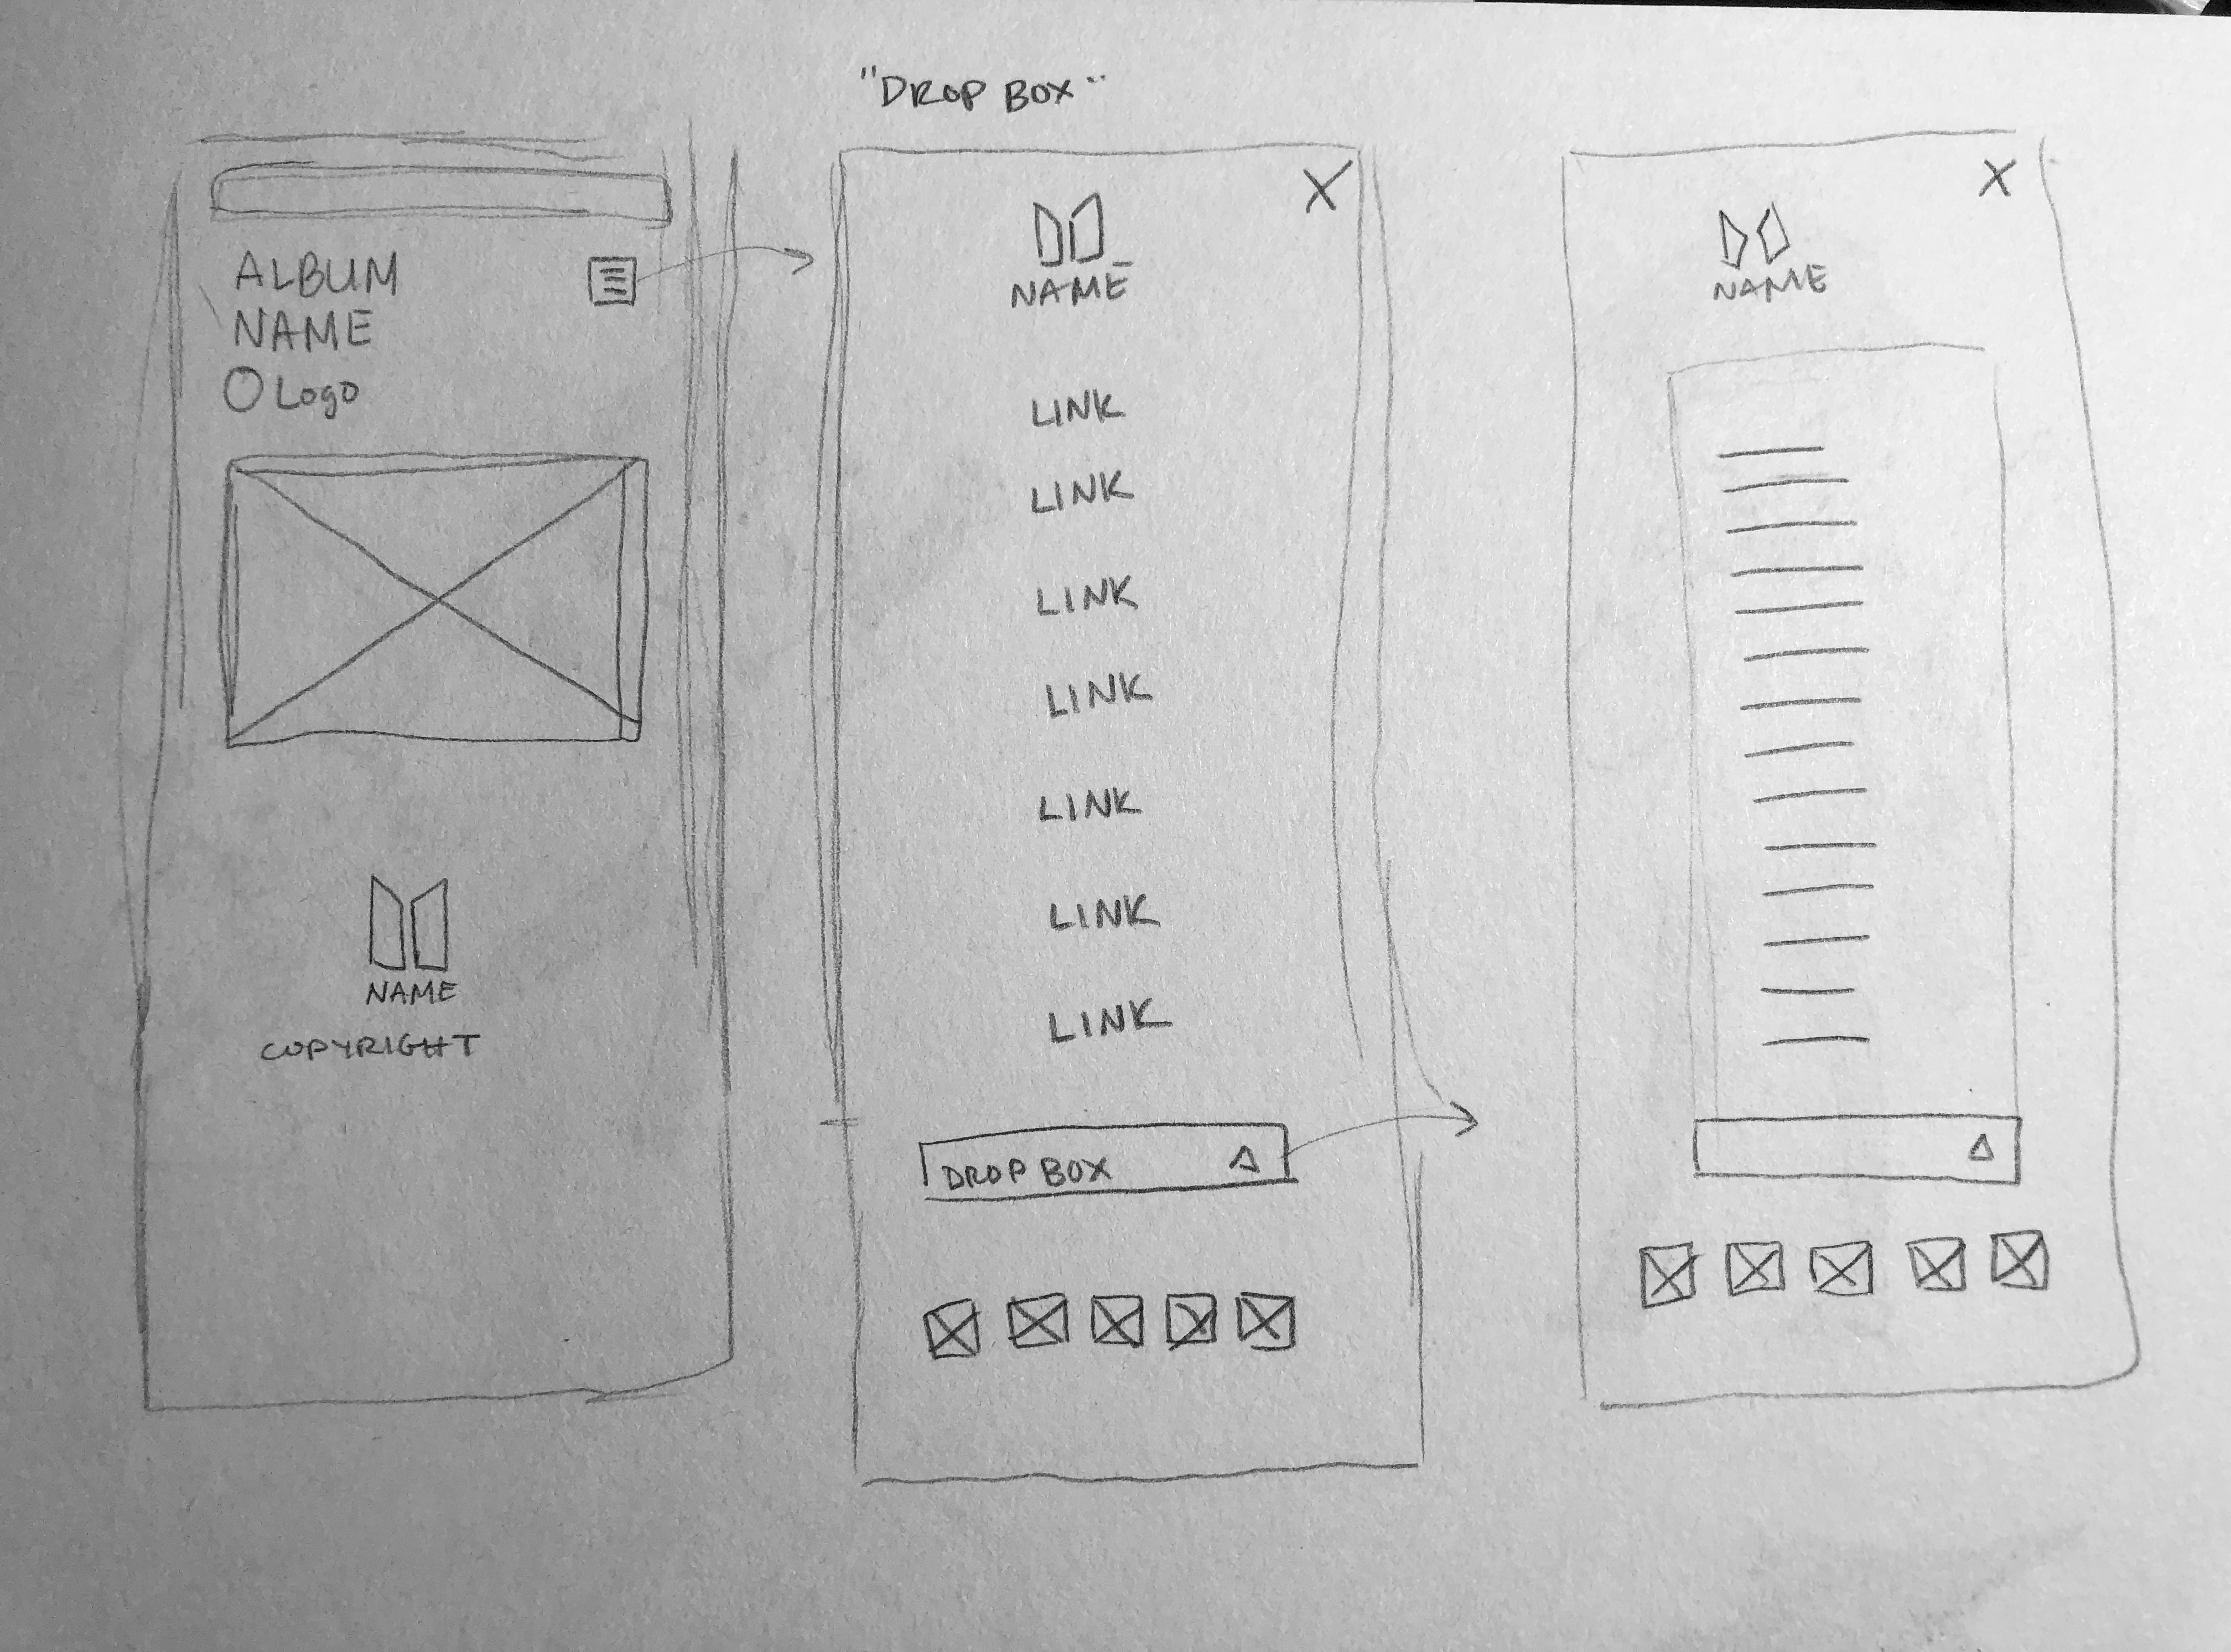 "DROP BOX"
ALBUM
NAME
Logo
NAME
COPYRIGHT
NAME
LINK
LINK
LINK
LINK
LINK
LINK
LINK
DROP BOX
NAME